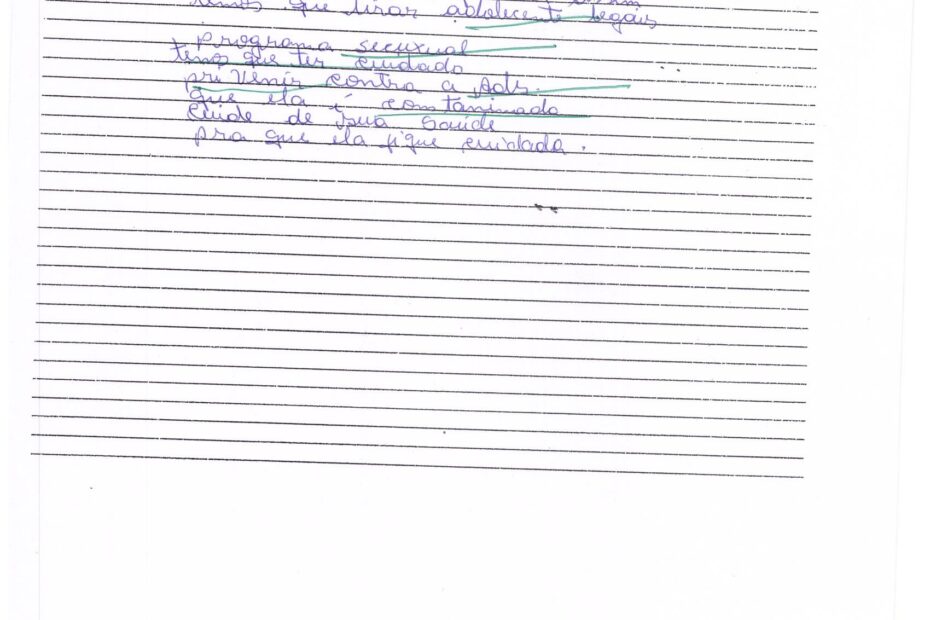 temos que tirar ablolecente legais
programa secuxual
tems que ter cuidado
pri Venir contra a Ads.
que ela é comstaminado
cuide de sua Saúde
pra que ela fique cuidada.